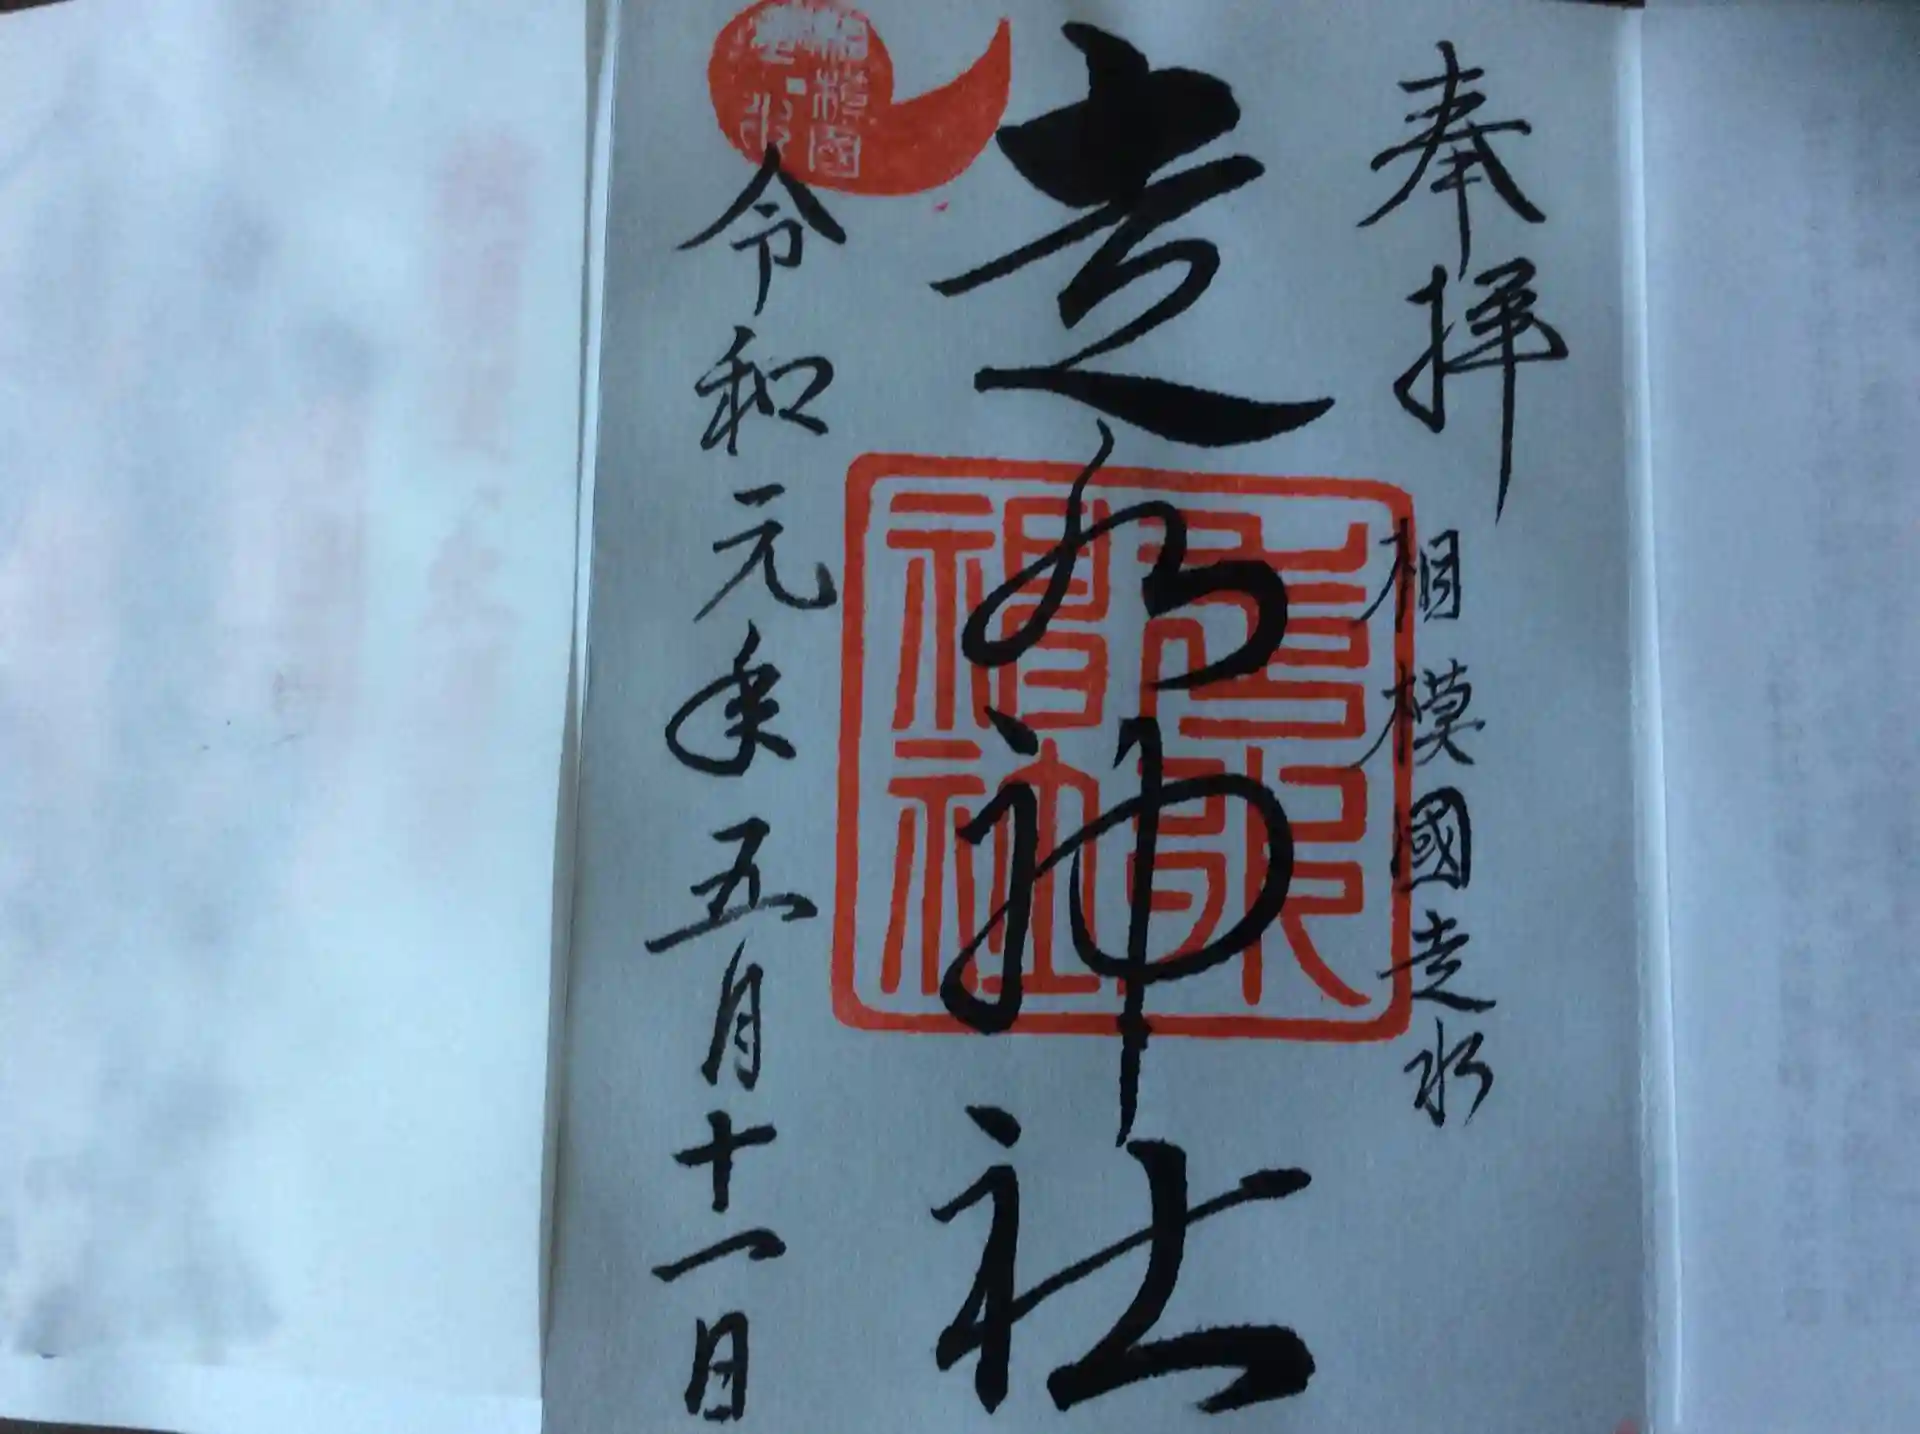 奉拝
相模國走水
走水神社
走水神社
相模國
走水
令和元年五月十一日